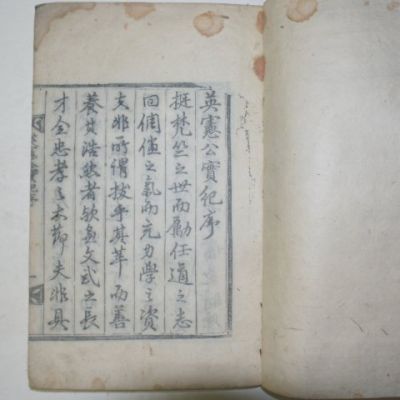 英憲公實紀序
挺梵竺之世而勵任道之志
回倜儻之氣而充力學之資
夫非所謂拔乎其萃而善
養其浩然者欤且文武之長
才全忠孝之大節夫非具